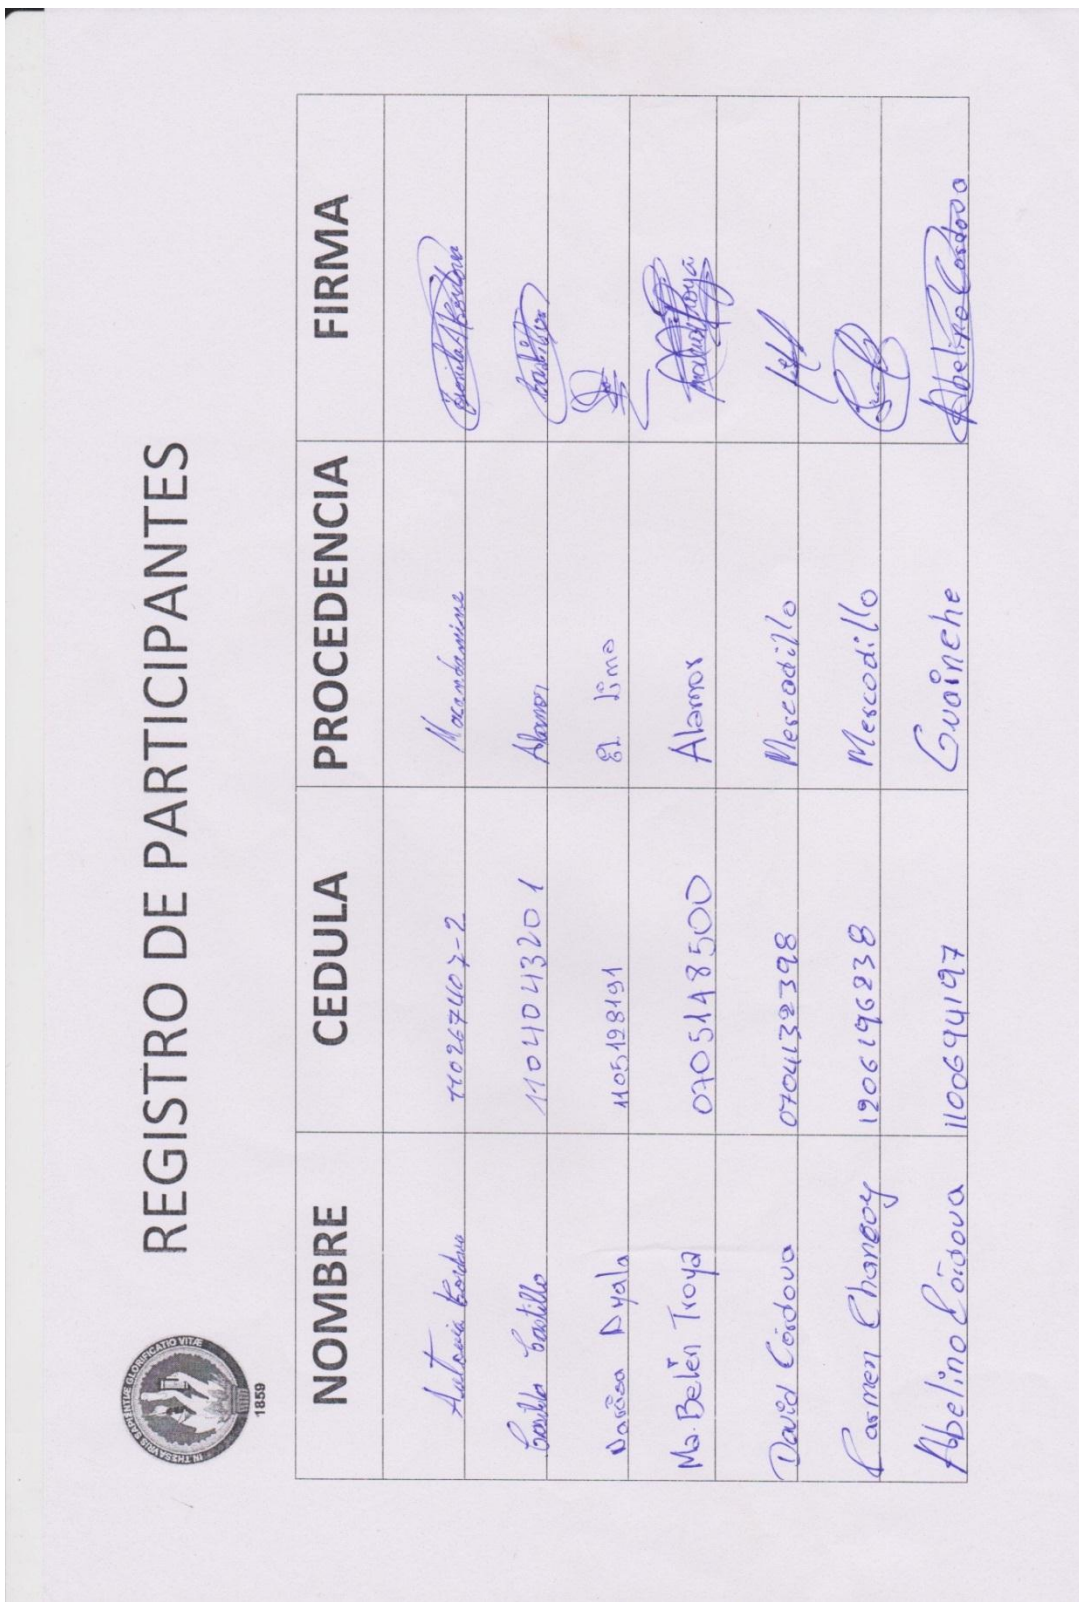 IN THESAVRIS SAPIENTIÆ GLORIFICATIO VITÆ
1859
REGISTRO DE PARTICIPANTES
NOMBRE CEDULA PROCEDENCIA FIRMA
Antonia Cordova 110267407-2
Castillo 1104043201 Alamor Castillo
Ayala 1105198191 El Limo
Ma. Belén Troya 0705148500 Alamor
David Córdova 0704132398 Mercadillo
Carmen Chamooy 1206196238 Mercadillo
Abelino Córdova 1100694197 Guainche Abelino Cordova